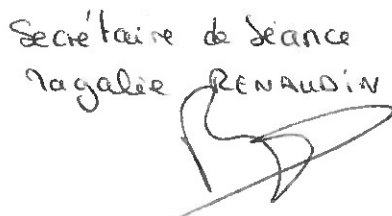 Secrétaire de Séance
Magalie RENAUDIN